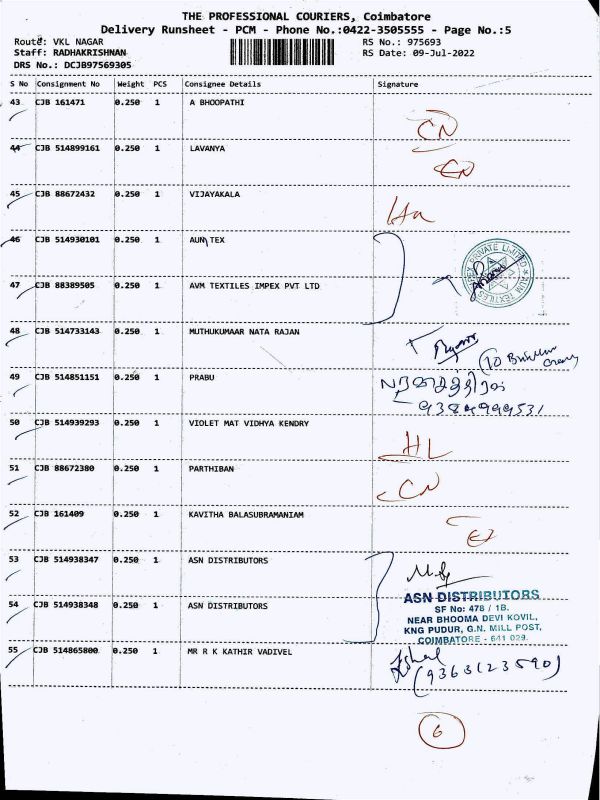 THE PROFESSIONAL COURIERS, Coimbatore
Delivery Runsheet - PCM - Phone No.:0422-3505555 - Page No.:5
Route: VKL NAGAR RS No.: 975693
Staff: RADHAKRISHNAN RS Date: 09-Jul-2022
DRS No.: DCJB97569305
S No Consignment No Weight PCS Consignee Details Signature
43 CJB 161471 0.250 1 A BHOOPATHI CN
44 CJB 514899161 0.250 1 LAVANYA CN
45 CJB 88672432 0.250 1 VIJAYAKALA
46 CJB 514930101 0.250 1 AUN TEX
47 CJB 88389505 0.250 1 AVM TEXTILES IMPEX PVT LTD
48 CJB 514733143 0.250 1 MUTHUKUMAAR NATA RAJAN
49 CJB 514851151 0.250 1 PRABU
9384999531
50 CJB 514939293 0.250 1 VIOLET MAT VIDHYA KENDRY HL
51 CJB 88672380 0.250 1 PARTHIBAN CN
52 CJB 161409 0.250 1 KAVITHA BALASUBRAMANIAM
53 CJB 514938347 0.250 1 ASN DISTRIBUTORS
54 CJB 514938348 0.250 1 ASN DISTRIBUTORS
ASN DISTRIBUTORS
SF No: 478 / 1B.
NEAR BHOOMA DEVI KOVIL,
KNG PUDUR, G.N. MILL POST,
COIMBATORE - 641 029.
55 CJB 514865800 0.250 1 MR R K KATHIR VADIVEL
(9363123590)
6